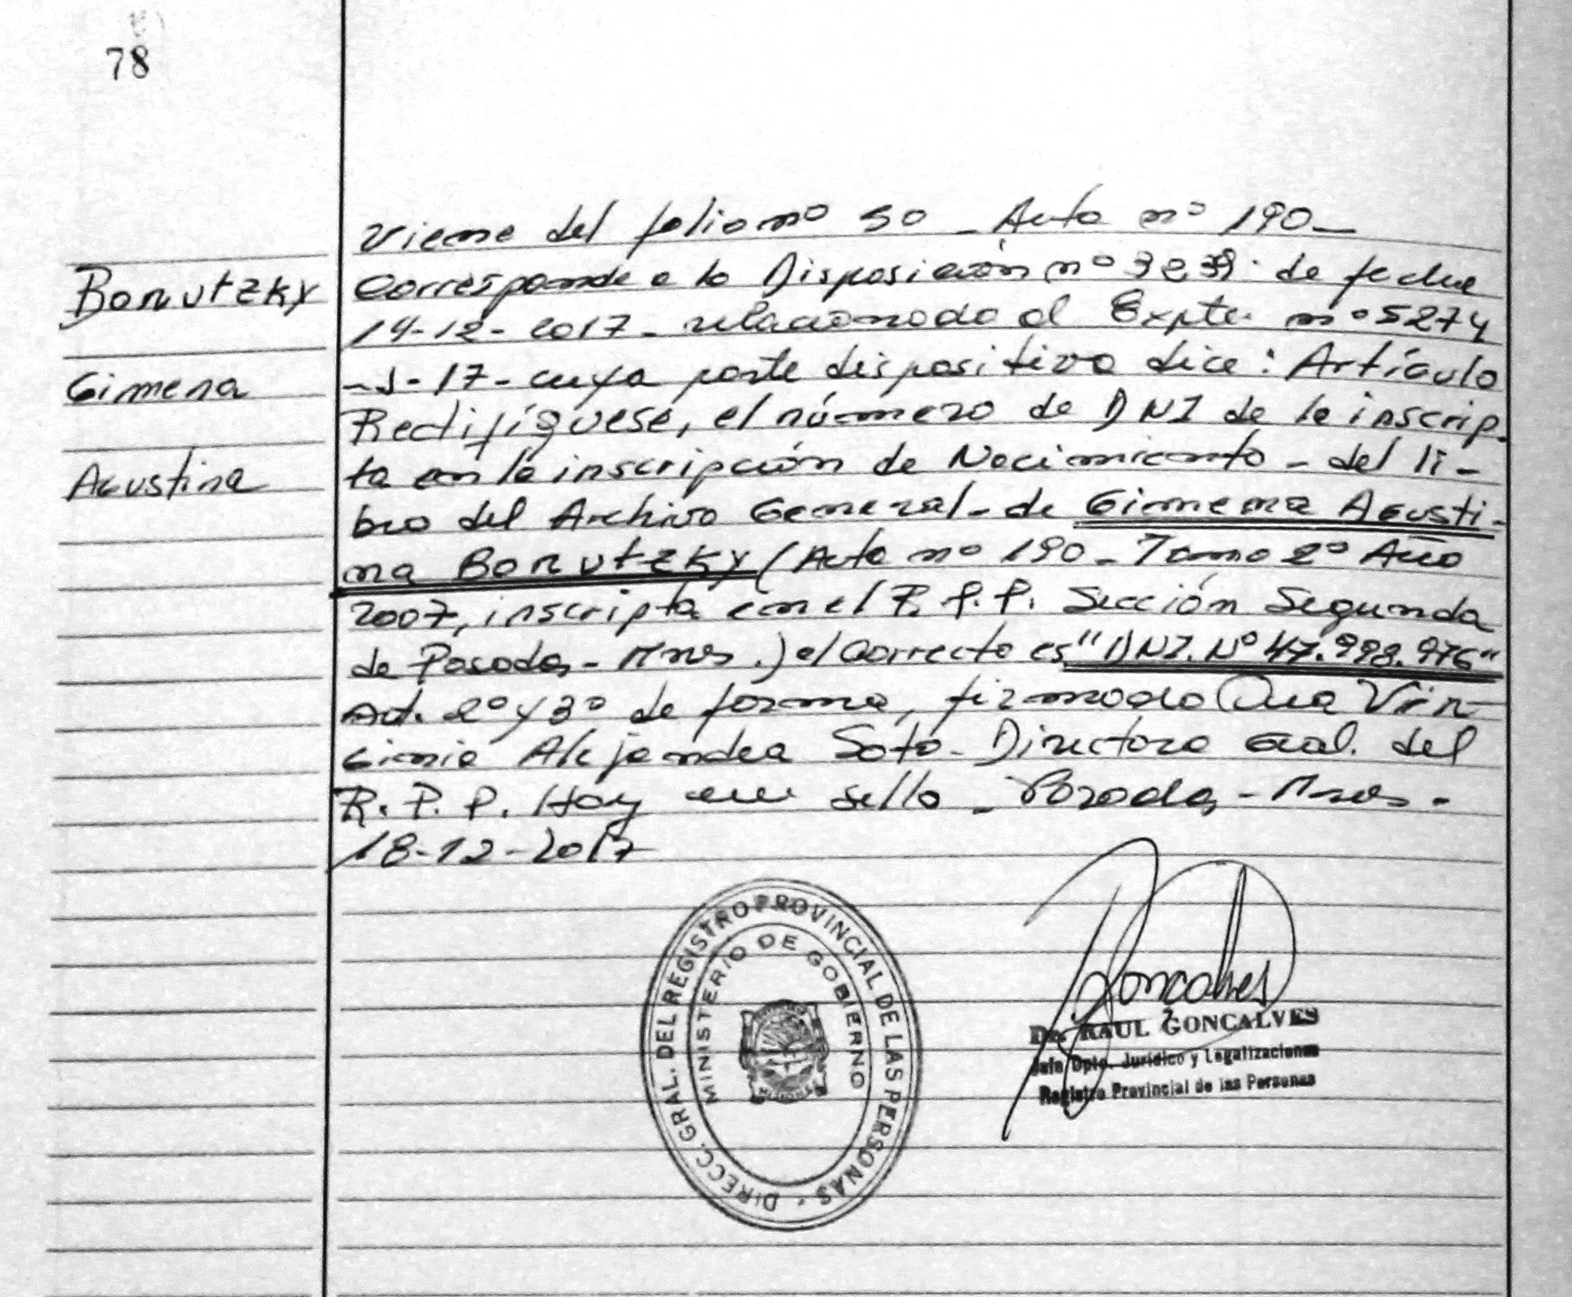 78
Viene del folio nº 50 - Acta nº 190 -
Bonutzky
Corresponde a la Disposición nº 3239 de fecha
14-12-2017 - relacionado al Expte. nº 5274
Gimena
-J-17- cuya parte dispositiva dice: Artículo
Rectifíquese, el número de DNI de la inscrip-
Agustina
ta en la inscripción de Nacimiento - del li-
bro del Archivo General - de Gimena Agusti-
na Bonutzky (Acta nº 190 - Tomo 2º Año
2007, inscripta en el R.P.P. Sección Segunda
de Posadas - Mnes.) el correcto es "DNI. Nº 47.998.976"
Art. 2º y 3º de forma, firmado Dra Vir-
ginia Alejandra Soto - Directora Gral. del
R.P.P. Hay un sello - Posadas - Mnes.
18-12-2017
DIRECC. GRAL. DEL REGISTRO PROVINCIAL DE LAS PERSONAS -
MINISTERIO DE GOBIERNO
Goncalves
Dr. RAUL GONCALVES
Jefe Dpto. Jurídico y Legalizaciones
Registro Provincial de las Personas